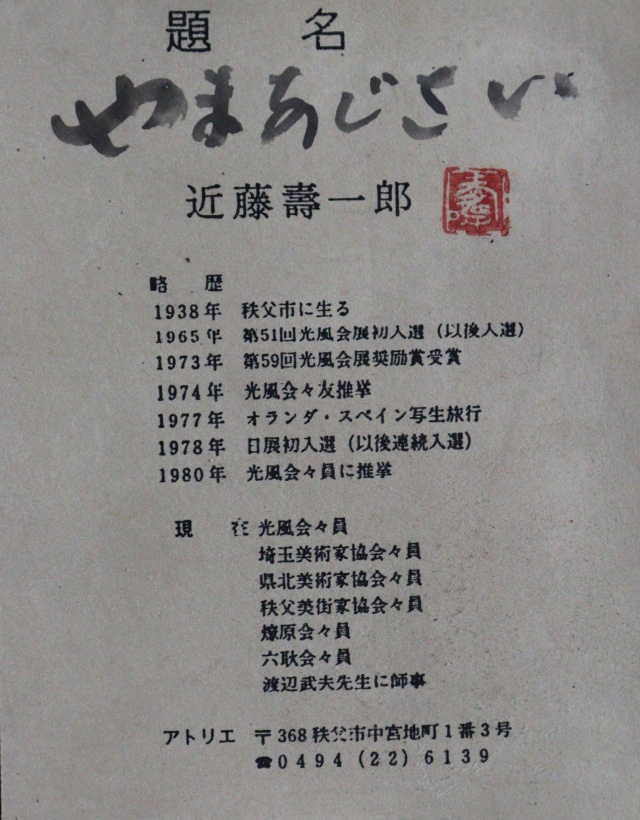 題名
やまあじさい
近藤壽一郎
略歴
1938年 秩父市に生る
1965年 第51回光風会展初入選（以後入選）
1973年 第59回光風会展奨励賞受賞
1974年 光風会々友推挙
1977年 オランダ・スペイン写生旅行
1978年 日展初入選（以後連続入選）
1980年 光風会々員に推挙
現在 光風会々員
埼玉美術家協会々員
県北美術家協会々員
秩父美術家協会々員
燎原会々員
六耿会々員
渡辺武夫先生に師事
アトリエ 〒368 秩父市中宮地町1番3号
☎0494（22）6139